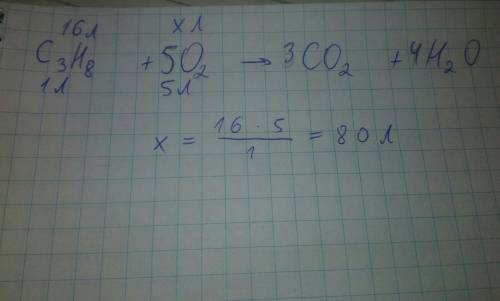 16л xл
C₃H₈ + 5O₂ → 3CO₂ + 4H₂O
1л 5л
x = 16 · 5 / 1 = 80л